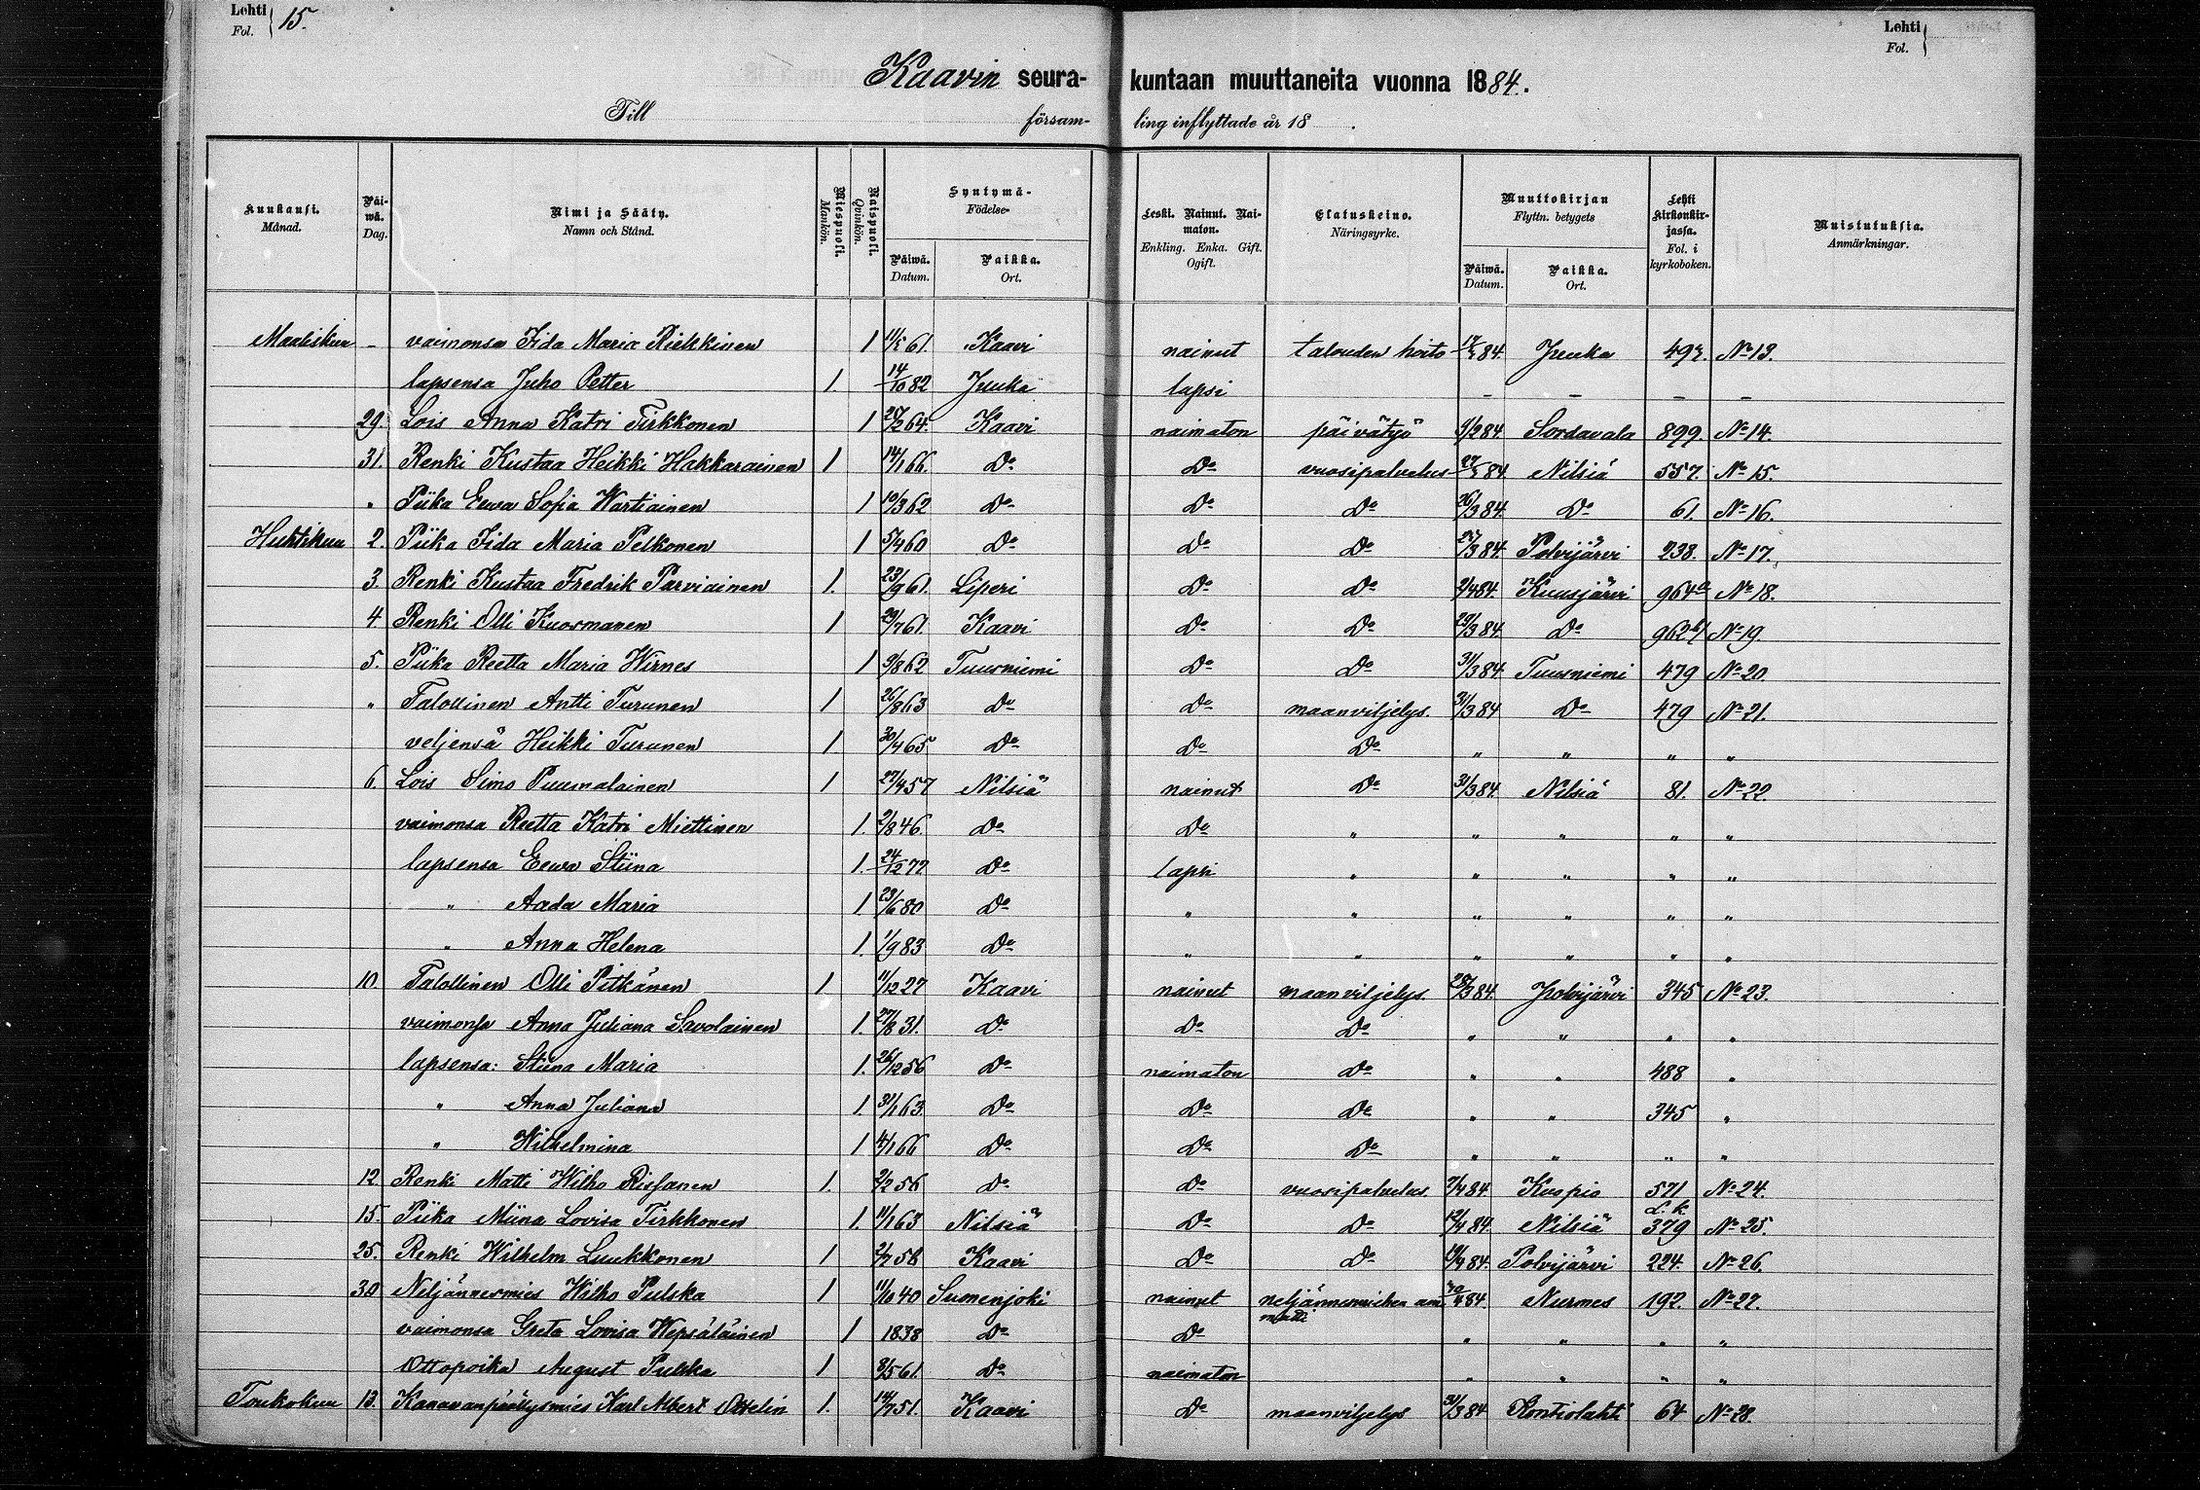 Lehti 15.
Fol.
Lehti
Fol.
Kaavin seura- kuntaan muuttaneita vuonna 1884.
Till försam- ling inflyttade år 18 .
Kuukausi. Månad. | Päiwä. Dag. | Nimi ja Sääty. Namn och Stånd. | Miespuoli. Mankön. | Naispuoli. Qvinkön. | Syntymä- Födelse- Päiwä. Datum. | Paikka. Ort. | Leski. Nainut. Naimaton. Enkling. Enka. Gift. Ogift. | Elatuskeino. Näringsyrke. | Muuttokirjan Flyttn. betygets Päiwä. Datum. | Paikka. Ort. | Lehti kirkonkirjassa. Fol. i kyrkoboken. | Muistutuksia. Anmärkningar.
Maaliskuu - vaimonsa Iida Maria Riekkinen 1 61. Kaavi nainut talouden hoito 84 Juuka 497. No 13.
lapsensa Juho Petter 1. 14/10 82 Juuka lapsi - - - -
29. Lois Anna Katri Tirkkonen 1 64. Kaavi naimaton päivätyö 84 Sordavala 899. No 14.
31. Renki Kustaa Heikki Hakkarainen 1 14/1 66. Do Do vuosipalvelus 84. Nilsiä 557. No 15.
" Piika Eewa Sofia Wartiainen 1 10/3 62 Do Do Do 26/3 84. Do 61. No 16.
Huhtikuu 2. Piika Iida Maria Pelkonen 1 5/4 60 Do Do Do 27/3 84. Polvijärvi 238. No 17.
3. Renki Kustaa Fredrik Parviainen 1. 23/9 61. Liperi Do Do 2/4 84. Kuusjärvi 964a No 18.
4. Renki Olli Kuosmanen 1 29/7 61. Kaavi Do Do 29/3 84. Do 962b/ No 19.
5. Piika Reetta Maria Wirnes 1 9/8 62 Tuusniemi Do Do 31/3 84. Tuusniemi 479 No 20.
" Talollinen Antti Turunen 1 26/8 63 Do Do maanviljelys. 31/3 84 Do 479 No 21.
veljensä Heikki Turunen 1 30/4 65 Do Do Do " " " "
6. Lois Simo Puumalainen 1 27/4 57 Nilsiä nainut Do 31/3 84. Nilsiä 81. No 22.
vaimonsa Reetta Katri Miettinen 1. 2/8 46. Do Do " " " " "
lapsensa Eewa Stiina 1. 24/12 77 Do lapsi " " " " "
" Aada Maria 1 23/6 80 Do " " " " " "
" Anna Helena 1. 1/9 83 Do " " " " " "
10. Talollinen Olli Pitkänen 1 11/12 27 Kaavi nainut maanviljelys. 28/3 84. Polvijärvi 345 No 23.
vaimonsa Anna Juliana Savolainen 1. 27/8 31. Do Do Do " " " "
lapsensa: Stiina Maria 1. 26/12 56 Do naimaton Do " " 488 "
" Anna Juliana 1. 31/1 63 Do Do Do " " 345 "
" Wilhelmina 1 4/1 66 Do Do Do " " " "
12. Renki Matti Wilho Rissanen 1. 2/2 56 Do Do vuosipalvelus. 7/4 84 Kuopio 571 No 24.
15. Piika Miina Lovisa Tirkkonen 1. 11/1 63 Nilsiä Do Do 12/4 84. Nilsiä L. k. 379 No 25.
25. Renki Wilhelm Luukkonen 1 2/7 58 Kaavi Do Do 19/4 84. Polvijärvi 224. No 26.
30. Neljännesmies Wilho Pulska 1 11/10 40 Suonenjoki nainut neljännesmiehen ammatti 84. Nurmes 192. No 27.
vaimonsa Greta Lovisa Wepsäläinen 1 1838 Do Do " " " "
Ottopoika August Pulska 1 8/5 61. Do naimaton " " " "
Toukokuu 13. Kanavanpäällysmies Karl Albert Ottelin 1. 14/7 51. Kaavi Do maanviljelys 31/3 84 Kontiolahti 64 No 28.